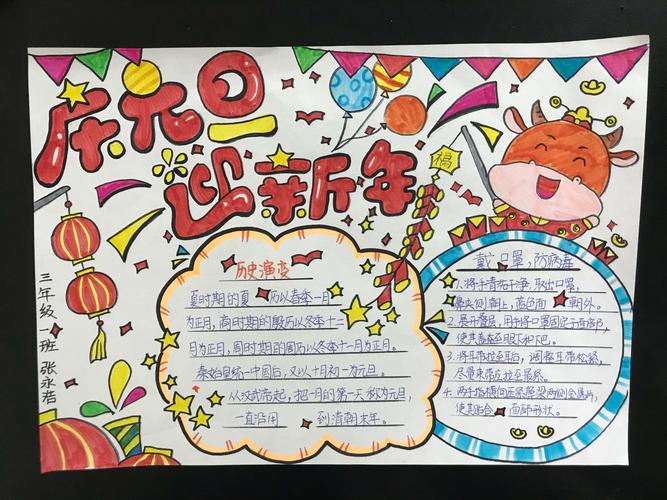 庆元旦
迎新年
福
三年级一班 张永浩
历史演变
夏时期的夏 历以春季一月
为正月,商时期的殷历以冬季十二
月为正月,周时期的周历以冬季十一月为正月。
秦始皇统一中国后,又以十月初一为元旦。
从汉武帝起,把一月的第一天称为元旦,
一直沿用 到清朝末年。
戴口罩,防病毒
1.将手清洁干净,取出口罩,
鼻夹侧朝上,蓝色面 朝外。
2.展开叠层,用手将口罩固定于面部,
使其覆盖至眼下和下巴。
3.将耳带拉至耳后,调整耳带松紧,
尽量束带应拉至最紧。
4.两手指横向压紧鼻梁两侧金属片,
使其贴合 面部形状。